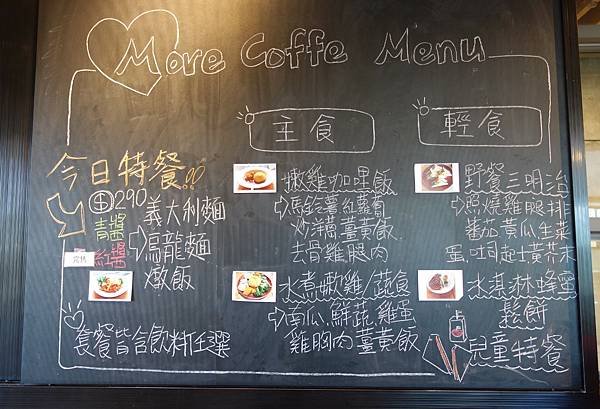 More Coffe Menu
今日特餐
$290
青醬
紅醬
完售
義大利麵
烏龍麵
燉飯
套餐皆含飲料任選
主食
嫩雞咖哩飯
馬鈴薯紅蘿蔔
炒洋蔥薑黃飯
去骨雞腿肉
水煮嫩雞/蔬食
南瓜.鮮蔬.雞蛋
雞胸肉薑黃飯
輕食
野餐三明治
照燒雞腿排
番茄黃瓜生菜
蛋.吐司起士黃芥末
水淇淋蜂蜜
鬆餅
兒童特餐